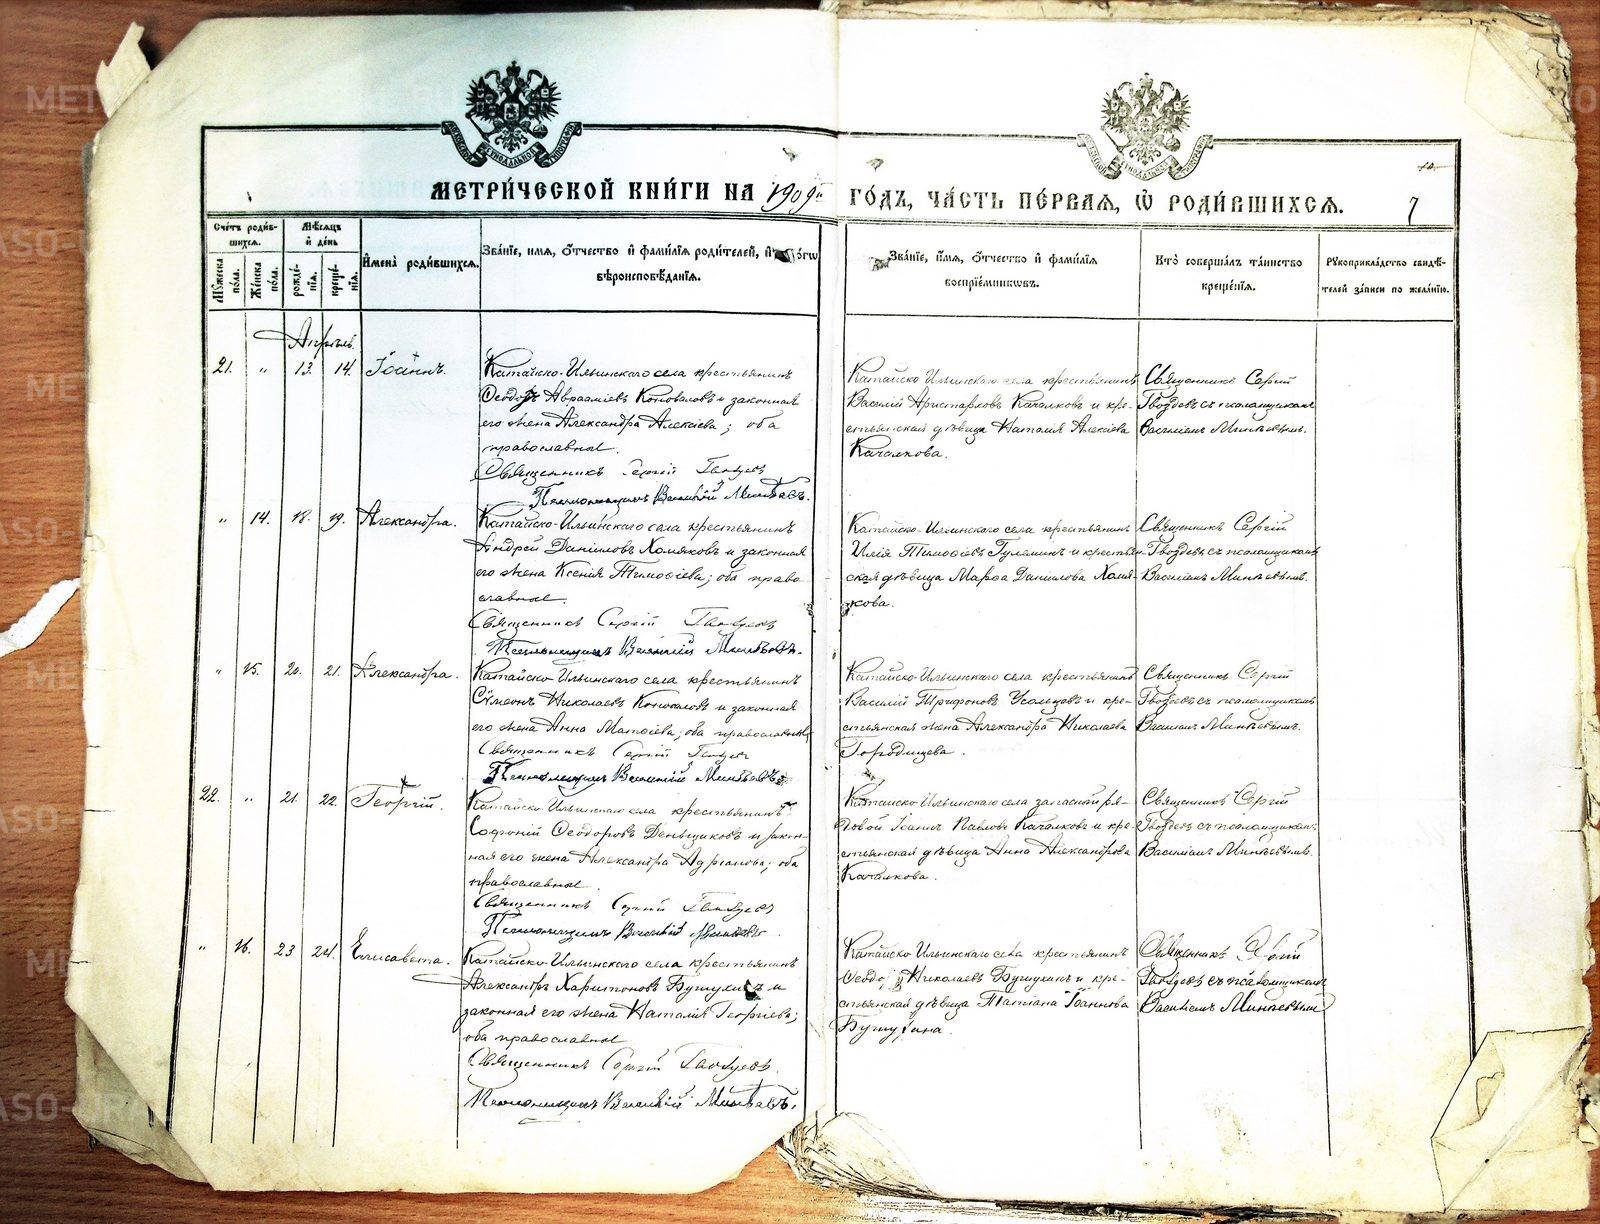 МЕТРИ́ЧЕСКОЙ КНИ́ГИ НА 1909й ГО́ДЪ, ЧА́СТЬ ПЕ́РВАЯ, Ѿ РОДИ́ВШИХСЯ.
7
Сче́тъ роди́в-
шихся.
Му́жеска по́ла.
Же́нска по́ла.
Мѣ́сяцъ
и де́нь
рожде́-
нія.
креще́-
нія.
Имена̀ роди́вшихся.
Зва́ніе, имя, о́тчество и фами́лія роди́телей, и
вѣроисповѣ́данія.
Зва́ніе, и́мя, о́тчество и фами́лія
воспріе́мниковъ.
Кто̀ соверша́лъ та́инство
креще́нія.
Рукоприкла́дство свидѣ́-
телей за́писи по жела́нію.
Апрѣль.
21. " 13. 14. Іоаннъ.
Катайско-Ильинскаго села крестьянинъ
Ѳеодоръ Авраамiевъ Коноваловъ и законная
его жена Александра Алексіева; оба
православные.
Священникъ Сергій Гвоздевъ
Псаломщикъ Василій Минѣевъ.
Катайско Ильинскаго села крестьянинъ
Василій Аристарховъ Качалковъ и кре-
стьянская дѣвица Наталія Алексіева
Качалкова.
Священникъ Сергій
Гвоздевъ съ псаломщикомъ
Василіемъ Минѣевымъ.
" 14. 18. 19. Александра.
Катайско-Ильинскаго села крестьянинъ
Андрей Даніиловъ Хомяковъ и законная
его жена Ксенія Тимоѳіева; оба право
славные.
Священникъ Сергій Гвоздевъ
Псаломщикъ Василій Минѣевъ.
Катайско-Ильинскаго села крестьянинъ
Илія Тимоѳіевъ Гулемин и крестьян-
ская дѣвица Марѳа Даніилова Хомя-
кова.
Священникъ Сергій
Гвоздевъ съ псаломщикомъ
Василіемъ Минѣевымъ.
" 15. 20. 21. Александра.
Катайско-Ильинскаго села крестьянинъ
Сѵмеонъ Николаевъ Коноваловъ и законная
его жена Анна Матѳіева; оба православные
Священникъ Сергій Гвоздевъ
Псаломщикъ Василій Минѣевъ.
Катайско-Ильинскаго села крестьянинъ
Василій Трифоновъ Усольцевъ и кре-
стьянская жена Александра Николаева
Городищева.
Священникъ Сергій
Гвоздевъ съ псаломщикомъ
Василіемъ Минѣевымъ.
22. " 21. 22. Георгій.
Катайско-Ильинскаго села крестьянинъ
Софроній Ѳеодоровъ Деньщиковъ и закон-
ная его жена Александра Адріанова; оба
православные.
Священникъ Сергій Гвоздевъ
Псаломщикъ Василій Минѣевъ.
Катайско-Ильинскаго села запасной ря-
довой Іоаннъ Павловъ Качалковъ и кре-
стьянская дѣвица Анна Александрова
Качалкова.
Священникъ Сергій
Гвоздевъ съ псаломщикомъ
Василіемъ Минѣевымъ.
" 16. 23 24. Елисавета.
Катайско-Ильинскаго села крестьянинъ
Александръ Харитоновъ Бушухинъ и
законная его жена Наталія Георгіева;
оба православные
Священникъ Сергій Гвоздевъ.
Псаломщикъ Василій Минѣевъ.
Катайско Ильинскаго села крестьянинъ
Николаевъ Бушухинъ и кре-
стьянская дѣвица Татіана Іоаннова
Бушухина.
Священникъ Сергій
Гвоздевъ съ псаломщикомъ
Василіемъ Минѣевымъ